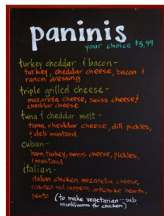 paninis
your choice $5.99
turkey cheddar & bacon -
turkey, cheddar cheese, bacon &
ranch dressing
triple grilled cheese -
mozarella cheese, swiss cheese,
cheddar cheese
tuna & cheddar melt -
tuna, cheddar cheese, dill pickles,
& deli mustard
cuban -
ham, turkey, swiss cheese, pickles,
& mustard
italian -
italian chicken mozarella cheese,
roasted red peppers, artichoke hearts,
pesto (to make vegetarian - sub
mushrooms for chicken)